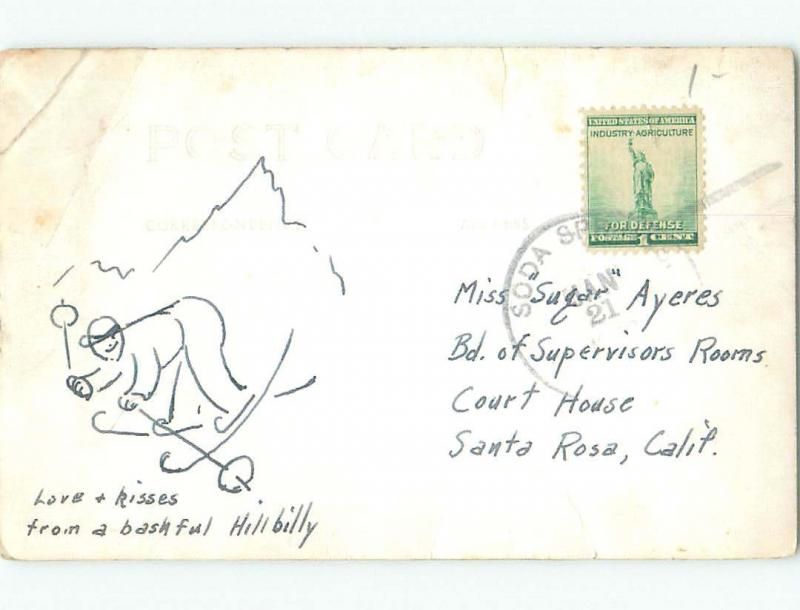 POST CARD
CORRESPONDENCE
ADDRESS
UNITED STATES OF AMERICA
INDUSTRY·AGRICULTURE
FOR DEFENSE
POSTAGE 1 CENT
SODA SPR
JAN
21
1-
Miss "Sugar" Ayeres
Bd. of Supervisors Rooms
Court House
Santa Rosa, Calif.
Love + kisses
from a bashful Hillbilly